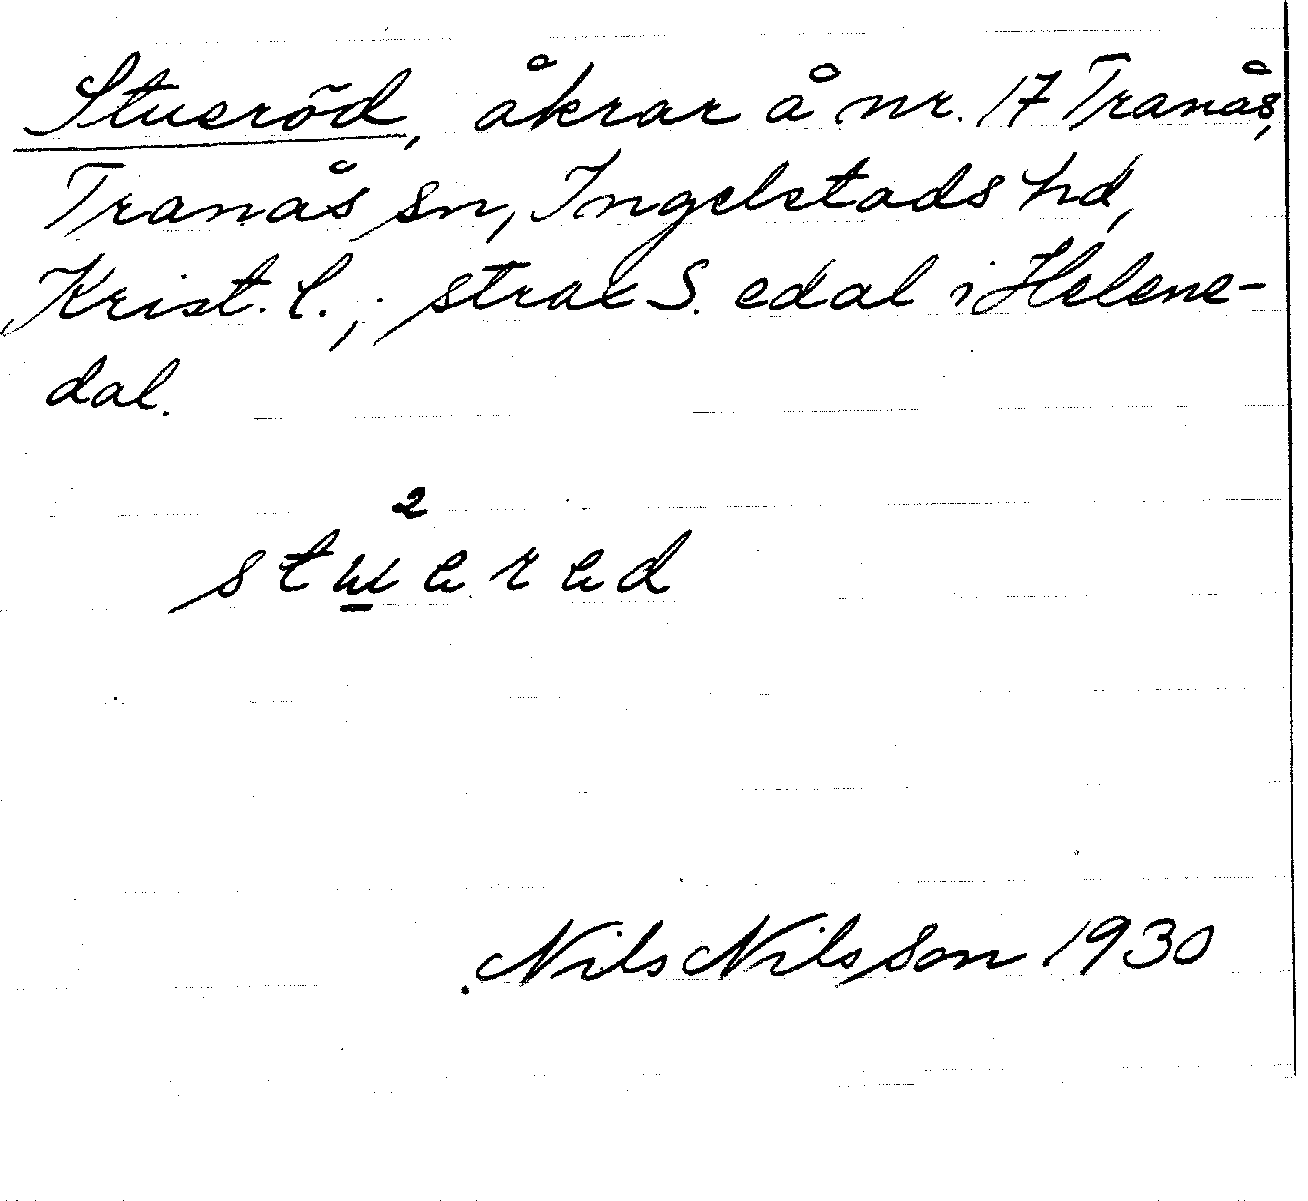 Stueröd, åkrar å nr. 17 Tranås,
Tranås sn, Ingelstads hd,
Krist. l.; strax S. edal i Helene-
dal.
2
stɯered
Nils Nilsson 1930